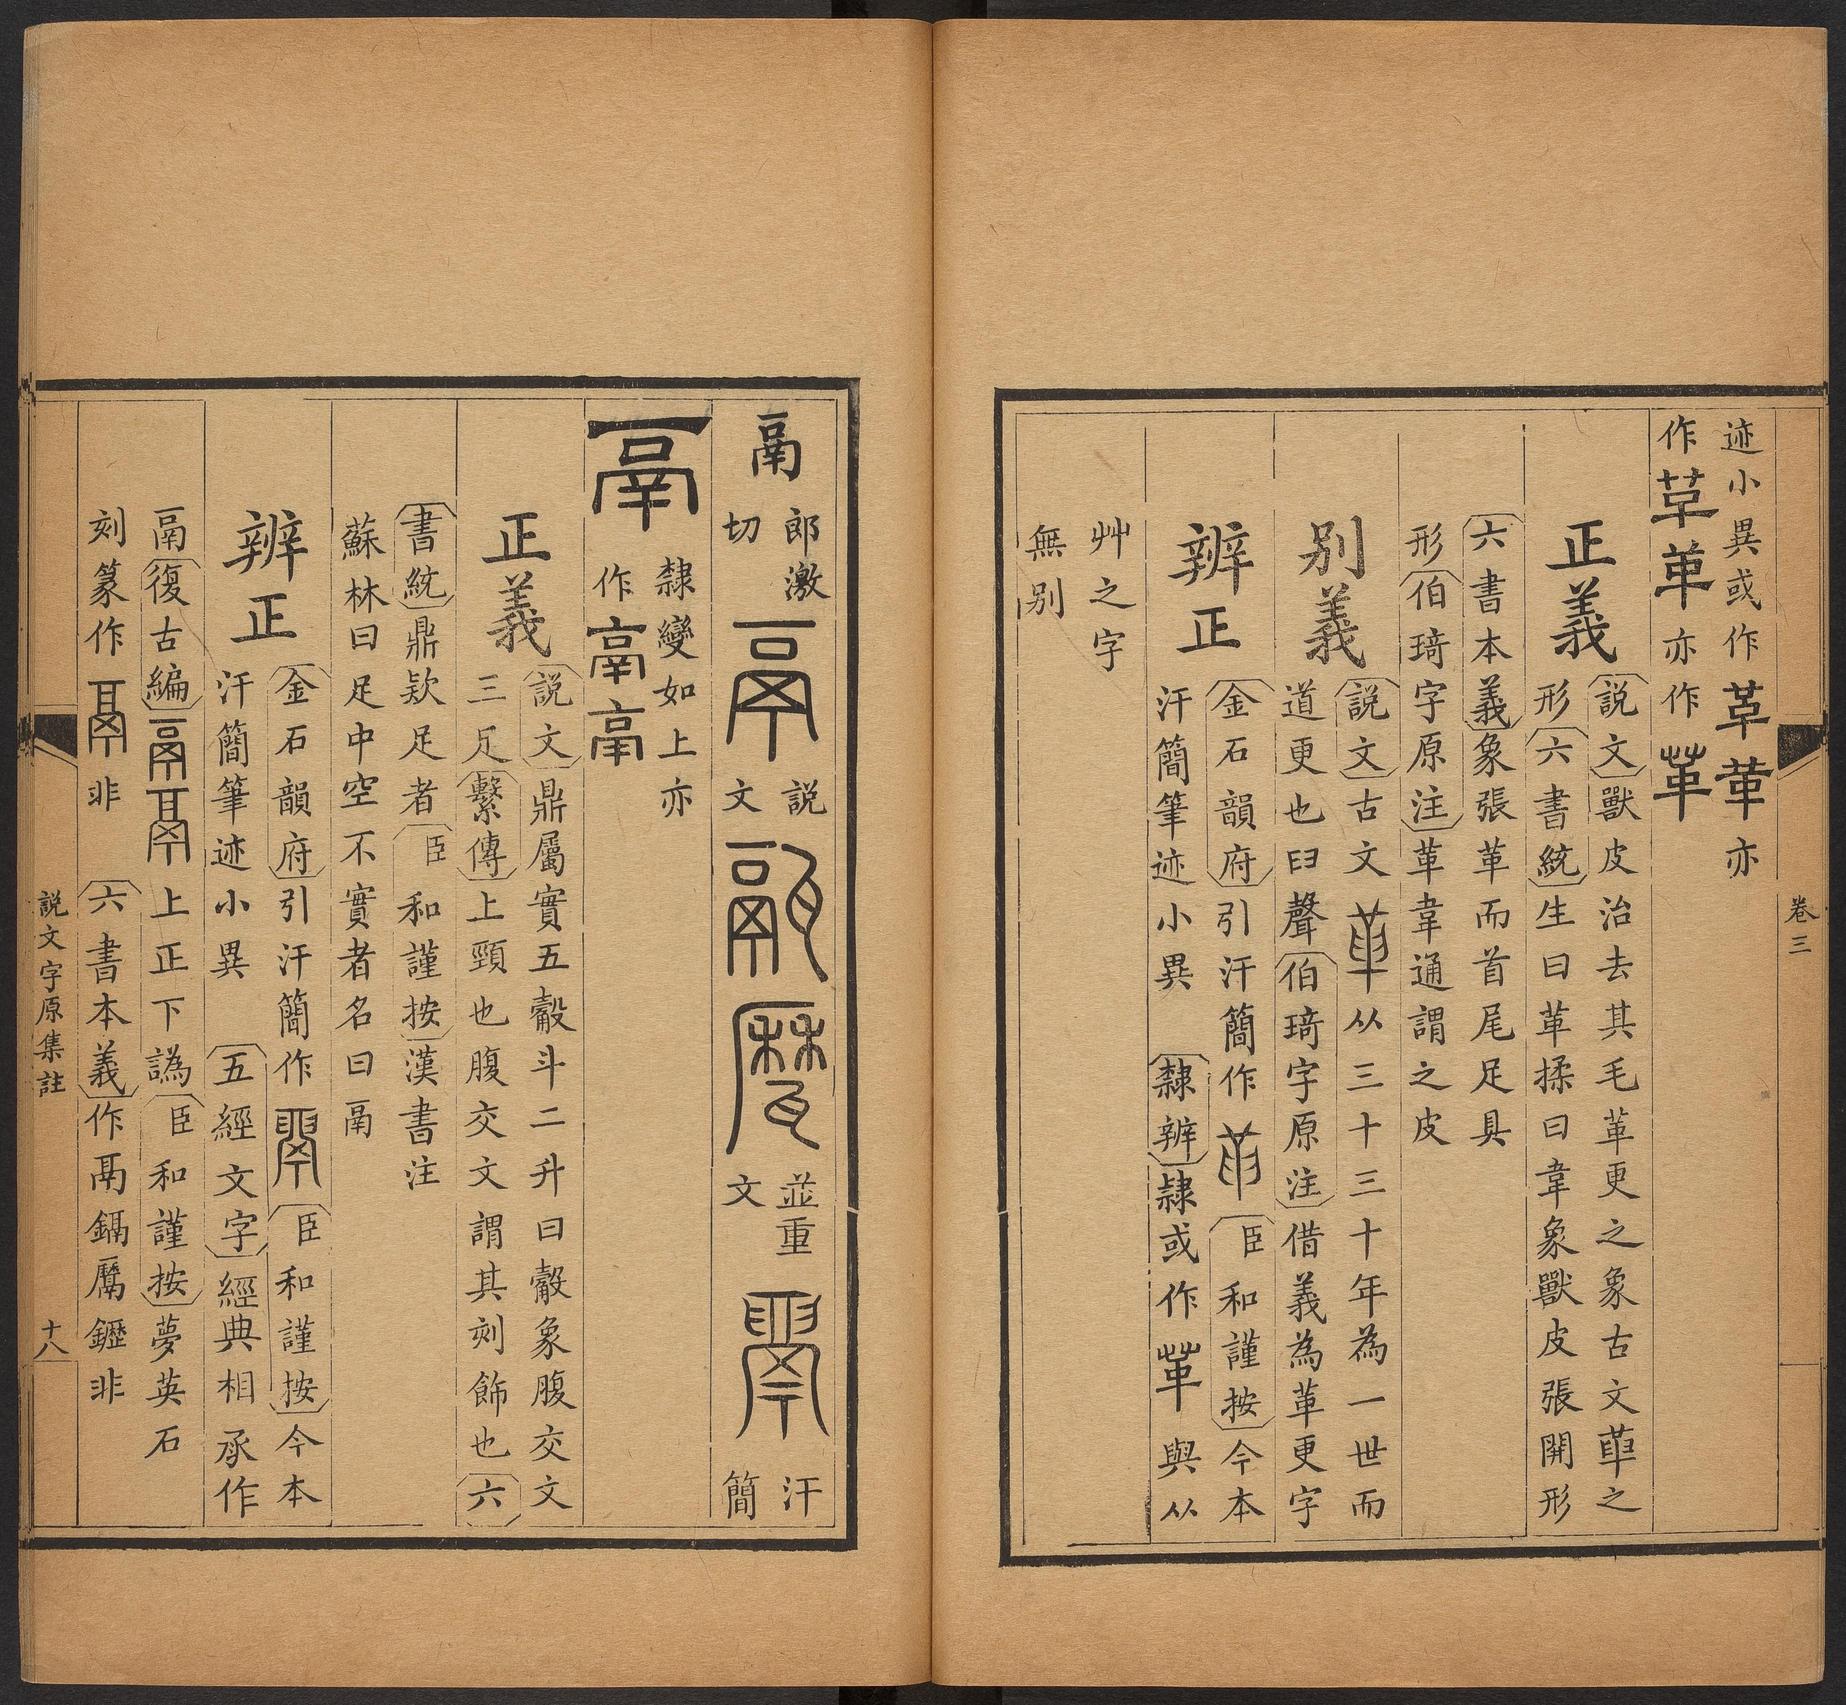 迹小異或作革革亦
作革革亦作革
正義
説文獸皮治去其毛革更之象古文革之
形六書統生曰革揉曰韋象獸皮張開形
六書本義象張革而首尾足具
形伯琦字原注革韋通謂之皮
别義
説文古文革从三十三十年為一世而
道更也𦥑聲伯琦字原注借義為革更字
辨正
金石韻府引汗簡作革臣和謹按今本
汗簡筆迹小異
隸辨隸或作革與从
艸之字
無别
卷三
鬲
郎激
切
鬲
説
文
䰛
𤮗
並重
文
鬲
汗
簡
鬲
隸變如上亦
作鬲鬲
正義
説文鼎屬實五觳斗二升曰觳象腹交文
三足繫傳上頸也腹交文謂其刻飾也六
書統鼎款足者臣和謹按漢書注
蘇林曰足中空不實者名曰鬲
辨正
金石韻府引汗簡作鬲臣和謹按今本
汗簡筆迹小異
五經文字經典相承作
鬲復古編鬲鬲上正下譌臣和謹按夢英石
刻篆作鬲非
六書本義作鬲鎘䰛鑩非
説文字原集註
十八